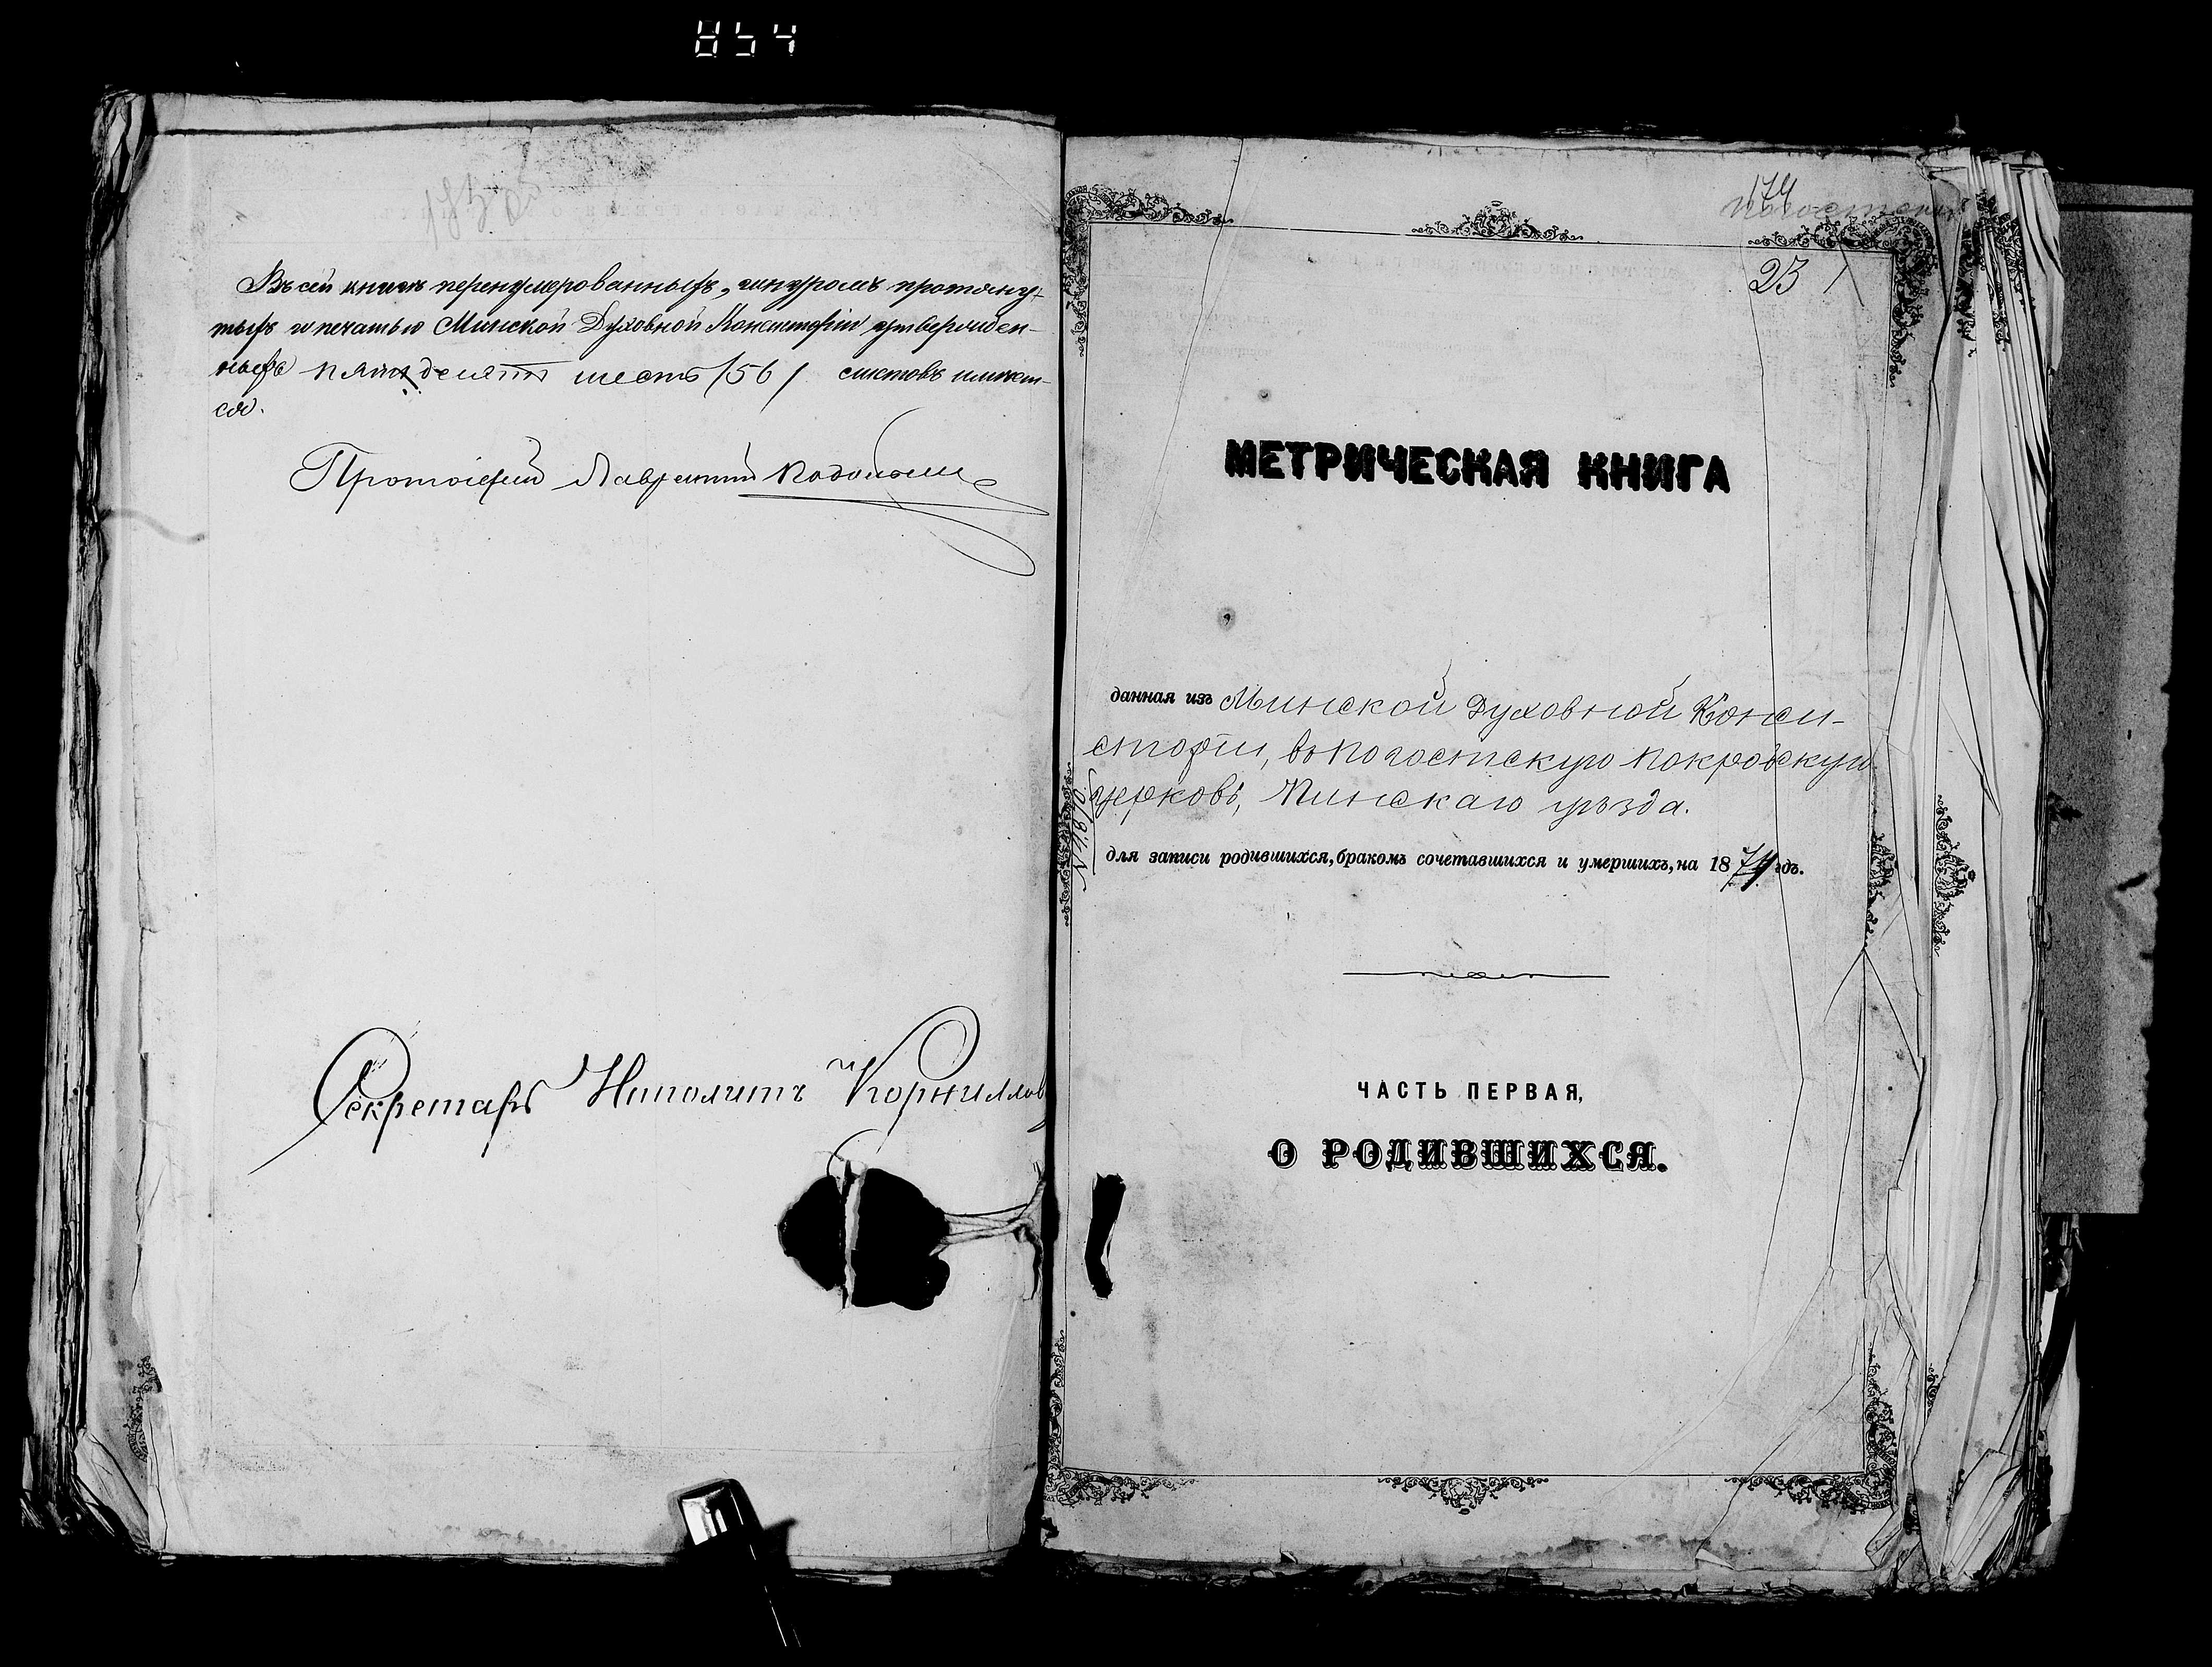 854
183 об
Въ сей книгѣ перенумерованныхъ, шнуромъ протяну-
тыхъ и печатью Минской Духовной Консисторіи утвержден-
ныхъ пятьдесятъ шесть /56/ листовъ имѣет-
ся.
Протоіерей Лаврентій
Секретарь Иполитъ Корниллов
174
Погостская
23
МЕТРИЧЕСКАЯ КНИГА
данная изъ Минской Духовной Конси-
сторіи, въ Погостскую Покровскую
церковь, Пинскаго уѣзда.
для записи родившихся, бракомъ сочетавшихся и умершихъ, на 1874 годъ.
ЧАСТЬ ПЕРВАЯ,
О РОДИВШИХСЯ.